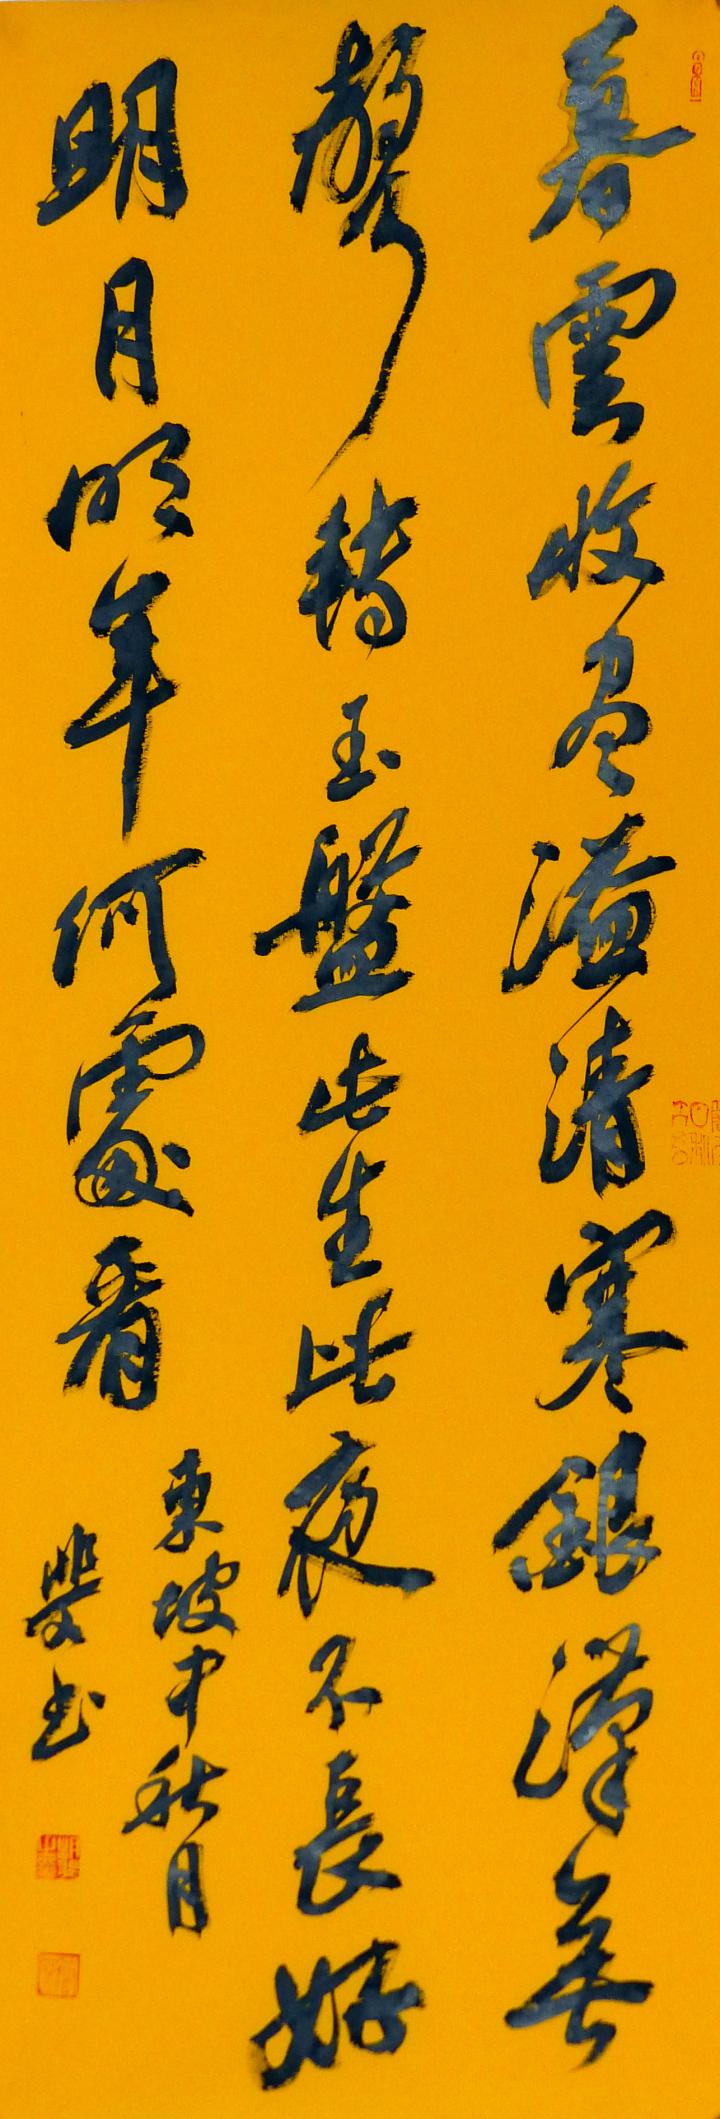 暮雲收盡溢清寒銀漢無
聲轉玉盤此生此夜不長好
明月明年何處看
東坡中秋月
斐书